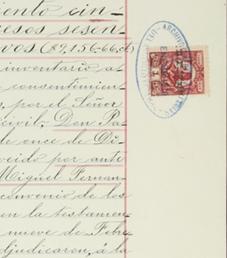 iento cin-
esos sesen-
vos ($9,156-66,c)
inventario a
consentimien
, por el Señor
civil- Don Pa
le once de Di
ecido por ante
Miguel Fernan-
convenio de los
en la testamen
nueve de Febre
djudicaron, á la